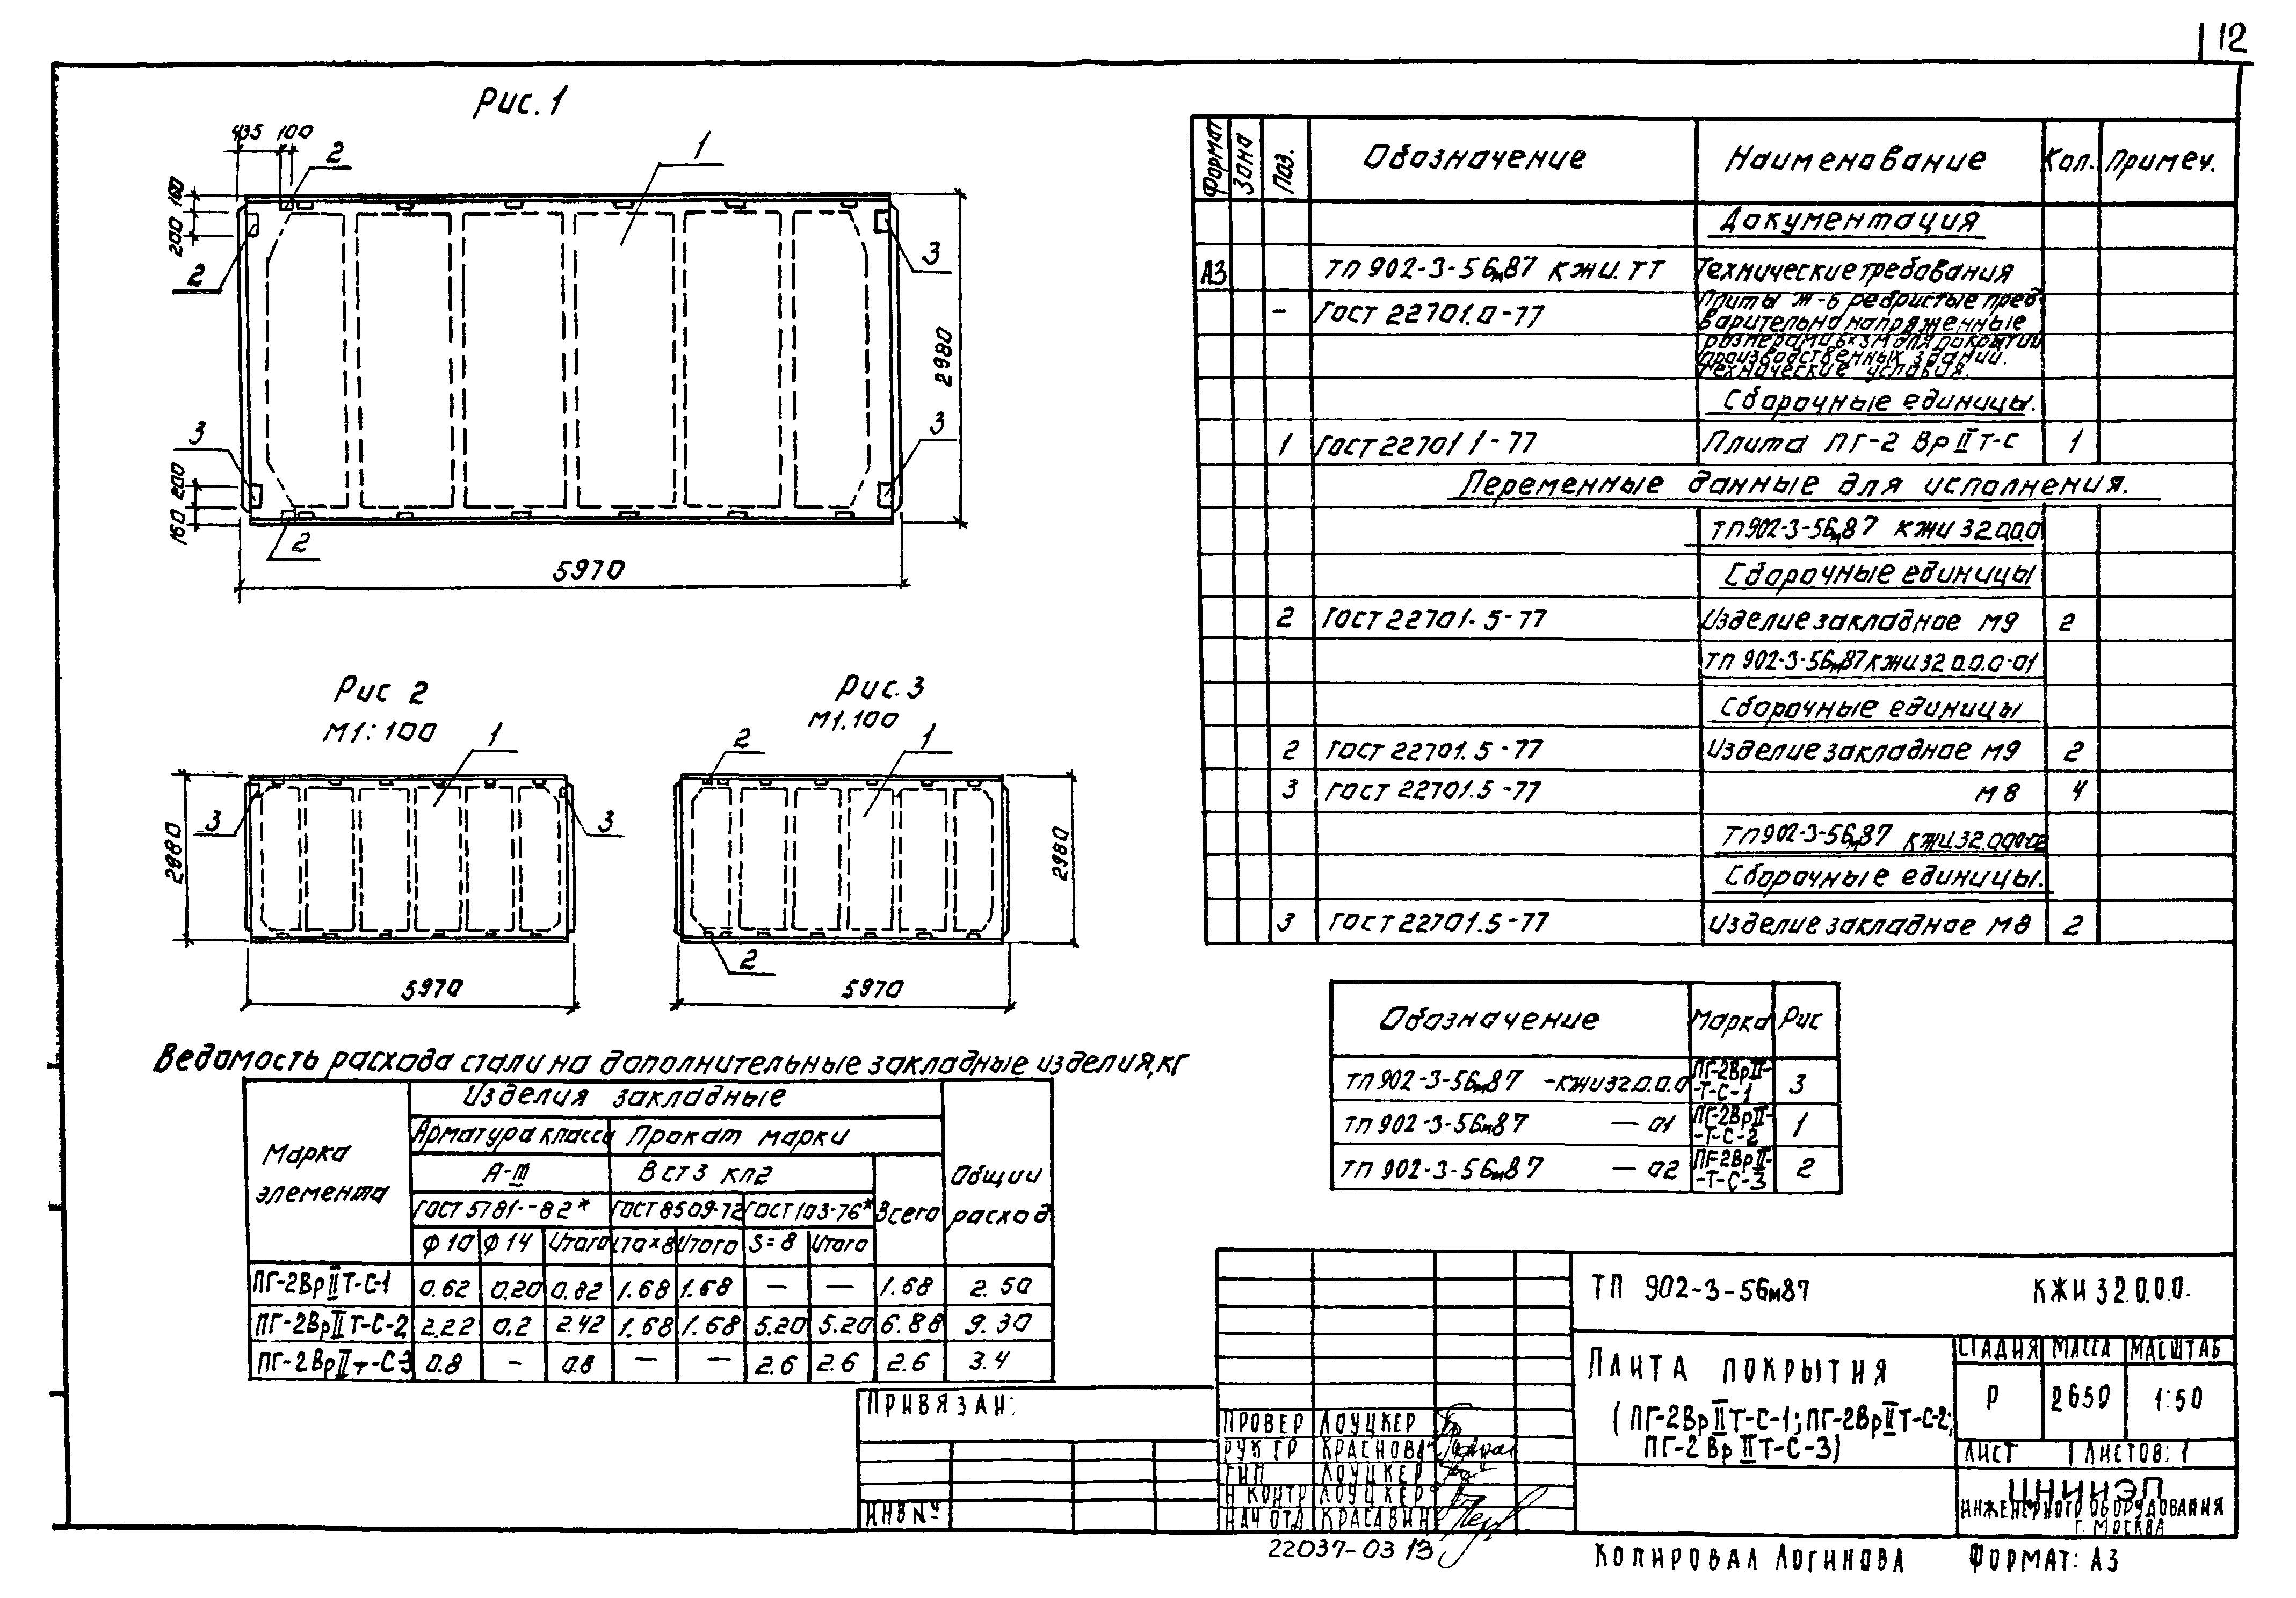 12
Рис. 1
435 100
2
1
160
200
2
3
2980
3
3
200
160
2
5970
Рис 2
М1:100
1
3
3
2980
5970
Рис. 3
М1.100
2
1
2980
2
5970
Формат Зона Поз. Обозначение Наименование Кол. Примеч.
Документация
А3 ТП 902-3-56м87 КЖИ.ТТ Технические требования
- ГОСТ 22701.0-77 Плиты ж-б ребристые пред-
варительно напряженные
размерами 6×3м для покрытий
производственных зданий.
Технические условия.
Сборочные единицы.
1 ГОСТ 22701 1-77 Плита ПГ-2 ВрII Т-С 1
Переменные данные для исполнения.
ТП902-3-56м87 КЖИ 32.0.0.0
Сборочные единицы
2 ГОСТ 22701.5-77 Изделие закладное М9 2
ТП 902-3-56м87 КЖИ 32 0.0.0-01
Сборочные единицы
2 ГОСТ 22701.5-77 Изделие закладное М9 2
3 ГОСТ 22701.5-77 М8 4
ТП902-3-56м87 КЖИ.32.0.0.0-02
Сборочные единицы.
3 ГОСТ 22701.5-77 Изделие закладное М8 2
Обозначение Марка Рис
ТП 902-3-56м87 -КЖИ32.0.0.0 ПГ-2ВрII-
-Т-С-1 3
ТП 902-3-56м87 — 01 ПГ-2ВрII-
-Т-С-2 1
ТП 902-3-56м87 — 02 ПГ-2ВрII-
-Т-С-3 2
Ведомость расхода стали на дополнительные закладные изделия, кг
Марка элемента Изделия закладные Общий расход
Арматура класса Прокат марки
А-III В ст3 кп2 Всего
ГОСТ 5781-82* ГОСТ8509-72 ГОСТ103-76*
Ф 10 Ф 14 Итого ∠70×8 Итого S=8 Итого
ПГ-2ВрIIТ-С-1 0.62 0.20 0.82 1.68 1.68 — — 1.68 2.50
ПГ-2ВрIIТ-С-2 2.22 0.2 2.42 1.68 1.68 5.20 5.20 6.88 9.30
ПГ-2ВрIIТ-С-3 0.8 - 0.8 — — 2.6 2.6 2.6 3.4
ПРИВЯЗАН:
ИНВ №
ТП 902-3-56м87 КЖИ 32.0.0.0.
ПЛИТА ПОКРЫТИЯ
(ПГ-2ВрIIТ-С-1; ПГ-2ВрIIТ-С-2;
ПГ-2ВрIIТ-С-3)
СТАДИЯ МАССА МАСШТАБ
Р 2650 1:50
ЛИСТ ЛИСТОВ: 1
ЦНИИЭП
ИНЖЕНЕРНОГО ОБОРУДОВАНИЯ
Г. МОСКВА
ПРОВЕР ЛОУЦКЕР
РУК ГР КРАСНОВА
ГИП ЛОУЦКЕР
Н КОНТР ЛОУЦКЕР
НАЧ ОТД КРАСАВИН
22037-03 13
КОПИРОВАЛ ЛОГИНОВА ФОРМАТ: А3